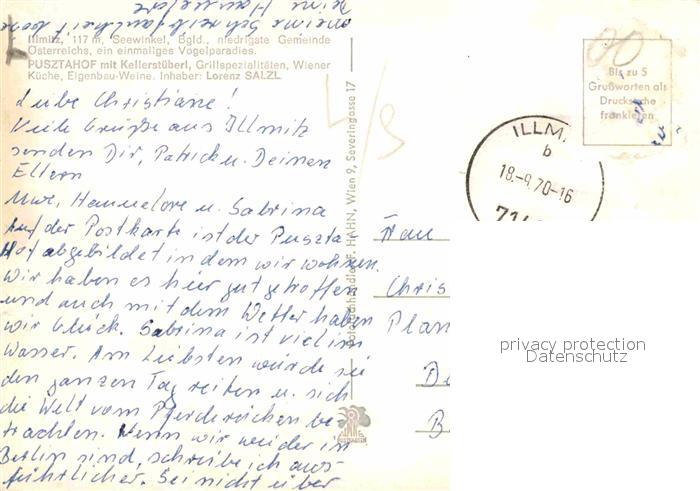 Illmitz, 117 m, Seewinkel, Bgld., niedrigste Gemeinde
Österreichs, ein einmaliges Vogelparadies.
PUSZTAHOF mit Kellerstüberl, Grillspezialitäten, Wiener
Küche, Eigenbau-Weine. Inhaber: Lorenz SALZL.
Liebe Christiane!
Viele Grüße aus Illmitz
senden Dir, Patrick u. Deinen
Eltern
Uwe, Hannelore u. Sabrina
Auf der Postkarte ist der Puszta-
Hof abgebildet in dem wir wohnen.
Wir haben es hier gut getroffen
und auch mit dem Wetter haben
wir Glück. Sabrina ist viel im
Wasser. Am Liebsten würde sie
den ganzen Tag reiten u. sich
die Welt vom Pferderücken be-
trachten. Wenn wir wieder in
Berlin sind, schreibe ich aus-
führlicher. Sei nicht über
meine Schreibfaulheit böse
Deine Hannelore
HAHN, Wien 9, Severingasse 17
Bis zu 5
Grußworten als
Drucksache
frankieren
ILLM
b
18.-9.70-16
71
Frau
Chris
Plan
B
privacy protection
Datenschutz